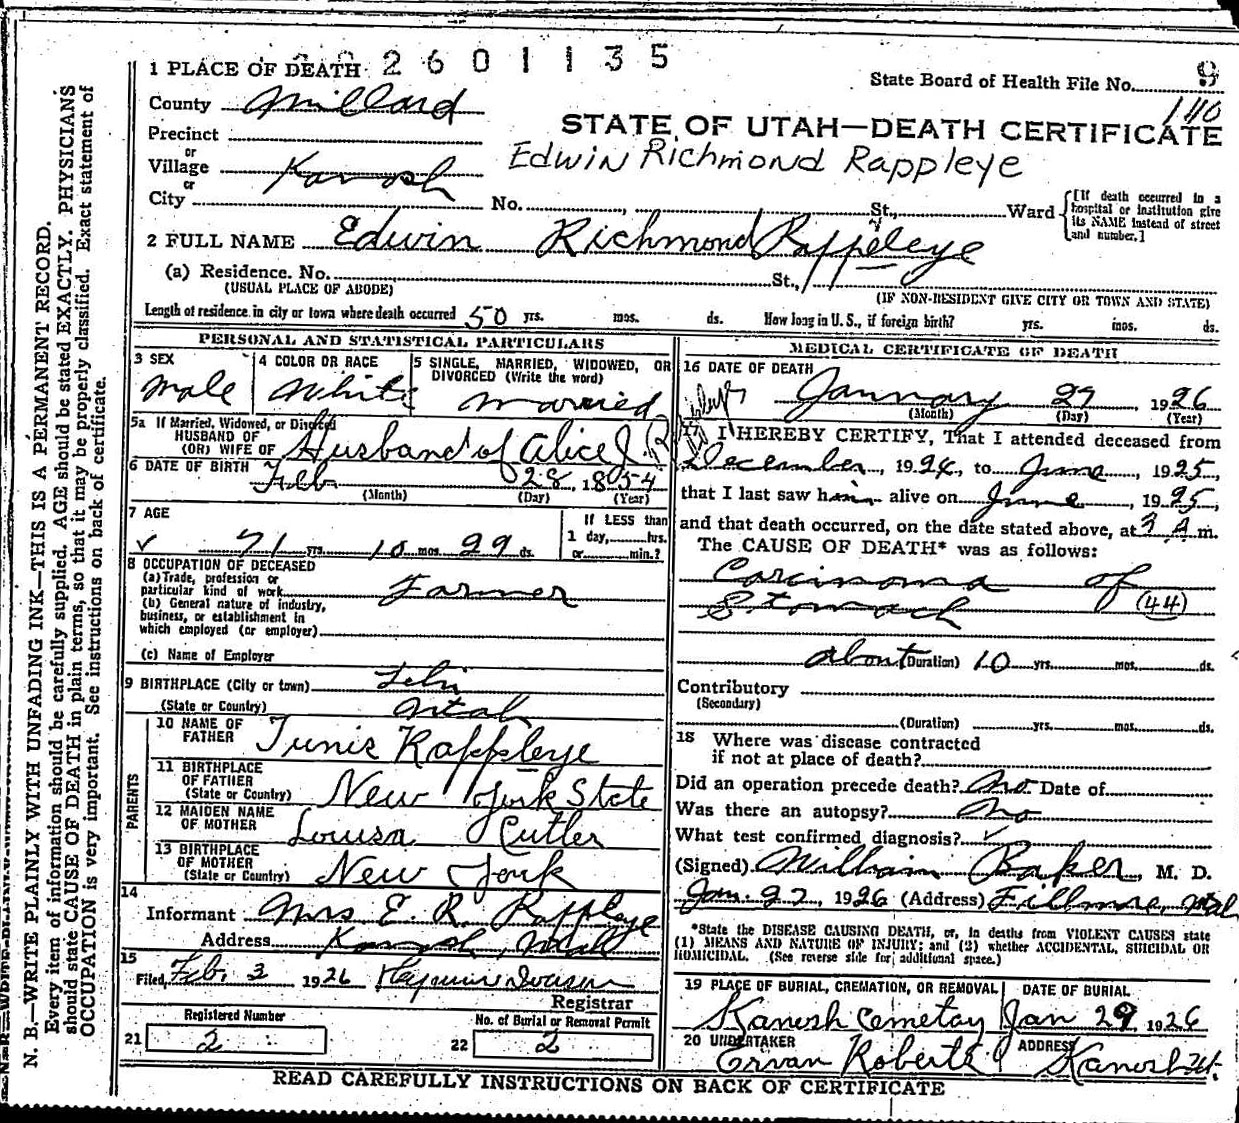 2601135
1 PLACE OF DEATH
State Board of Health File No. 9
110
County Millard
STATE OF UTAH—DEATH CERTIFICATE
Precinct
or
Edwin Richmond Rappleye
Village Kanosh
or
City No. , St., Ward
[If death occurred in a
hospital or institution give
its NAME instead of street
and number.]
2 FULL NAME Edwin Richmond Rappleye
(a) Residence. No. St.,
(USUAL PLACE OF ABODE) (IF NON-RESIDENT GIVE CITY OR TOWN AND STATE)
Length of residence in city or town where death occurred 50 yrs. mos. ds. How long in U.S., if foreign birth? yrs. mos. ds.
PERSONAL AND STATISTICAL PARTICULARS
3 SEX
Male
4 COLOR OR RACE
White
5 SINGLE, MARRIED, WIDOWED, OR
DIVORCED (Write the word)
Married
5a If Married, Widowed, or Divorced
HUSBAND OF
(OR) WIFE OF Husband of Alice J. R
6 DATE OF BIRTH Feb 28, 1854
(Month) (Day) (Year)
7 AGE
71 yrs. 10 mos. 29 ds.
If LESS than
1 day, hrs.
or min.?
8 OCCUPATION OF DECEASED
(a) Trade, profession or
particular kind of work Farmer
(b) General nature of industry,
business, or establishment in
which employed (or employer)
(c) Name of Employer
9 BIRTHPLACE (City or town) Lehi
(State or Country) Utah
PARENTS
10 NAME OF
FATHER Tunis Rappleye
11 BIRTHPLACE
OF FATHER
(State or Country) New York State
12 MAIDEN NAME
OF MOTHER Louisa Cutler
13 BIRTHPLACE
OF MOTHER
(State or Country) New York
14
Informant Mrs E. R. Rappleye
Address Kanosh, Utah
15
Filed, Feb. 3 1926
Registrar
Registered Number
21 2
No. of Burial or Removal Permit
22 2
MEDICAL CERTIFICATE OF DEATH
16 DATE OF DEATH
January 27, 1926
(Month) (Day) (Year)
17 I HEREBY CERTIFY, That I attended deceased from
December, 1924, to June, 1925,
that I last saw him alive on June, 1925,
and that death occurred, on the date stated above, at 3 A m.
The CAUSE OF DEATH* was as follows:
Carcinoma of
Stomach (44)
about (Duration) 10 yrs. mos. ds.
Contributory
(Secondary)
(Duration) yrs. mos. ds.
18 Where was disease contracted
if not at place of death?
Did an operation precede death? No. Date of
Was there an autopsy? No
What test confirmed diagnosis? ✓
(Signed) William Baker, M. D.
Jan. 27, 1926 (Address) Fillmore, Utah
*State the DISEASE CAUSING DEATH, or, in deaths from VIOLENT CAUSES state
(1) MEANS AND NATURE OF INJURY; and (2) whether ACCIDENTAL, SUICIDAL OR
HOMICIDAL. (See reverse side for additional space.)
19 PLACE OF BURIAL, CREMATION, OR REMOVAL
Kanosh Cemetery
DATE OF BURIAL
Jan 29 1926
20 UNDERTAKER
Ervan Roberts
ADDRESS
Kanosh Ut.
READ CAREFULLY INSTRUCTIONS ON BACK OF CERTIFICATE
N. B.—WRITE PLAINLY WITH UNFADING INK—THIS IS A PERMANENT RECORD.
Every item of information should be carefully supplied. AGE should be stated EXACTLY. PHYSICIANS
should state CAUSE OF DEATH in plain terms, so that it may be properly classified. Exact statement of
OCCUPATION is very important. See instructions on back of certificate.